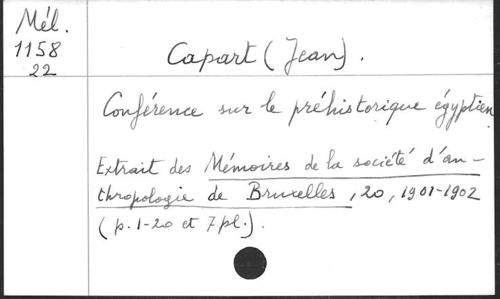 Mél.
1158
22
Capart (Jean).
Conférence sur le préhistorique égyptien
Extrait des Mémoires de la société d'an-
thropologie de Bruxelles, 20, 1901-1902
(p. 1-20 et 7 pl.).